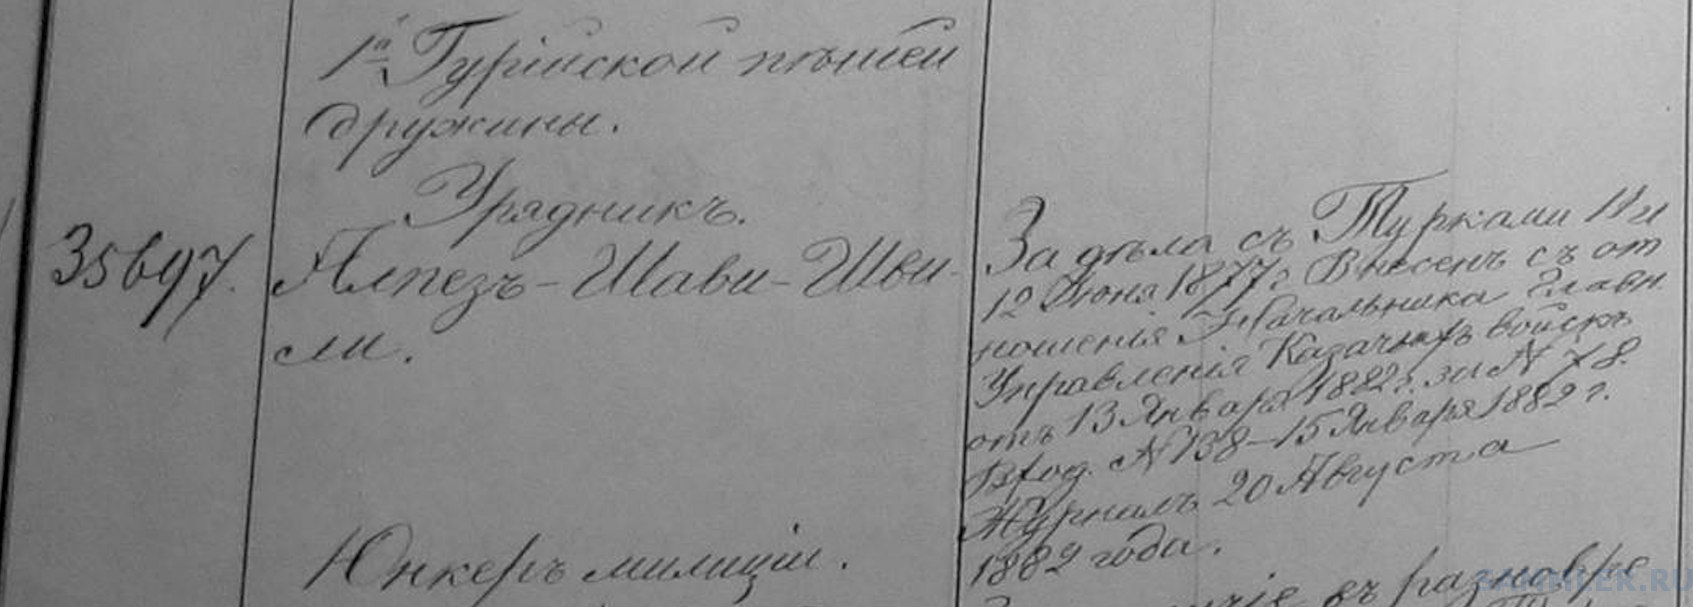 1й Гурійской пѣшей
дружины.
Урядникъ.
35697. Алпезъ-Шави-Шви-
ли.
За дѣла съ Турками 11 и
12 Іюня 1877 г. Внесенъ съ от
ношенія Начальника Главн
Управленія Казачьихъ войскъ
отъ 13 Января 1882 г. за N 78.
Вход. N 138-15 Января 1882 г.
Журналъ 20 Августа
1882 года.
Юнкеръ милиціи.
въ разновре
SAMMLER.RU